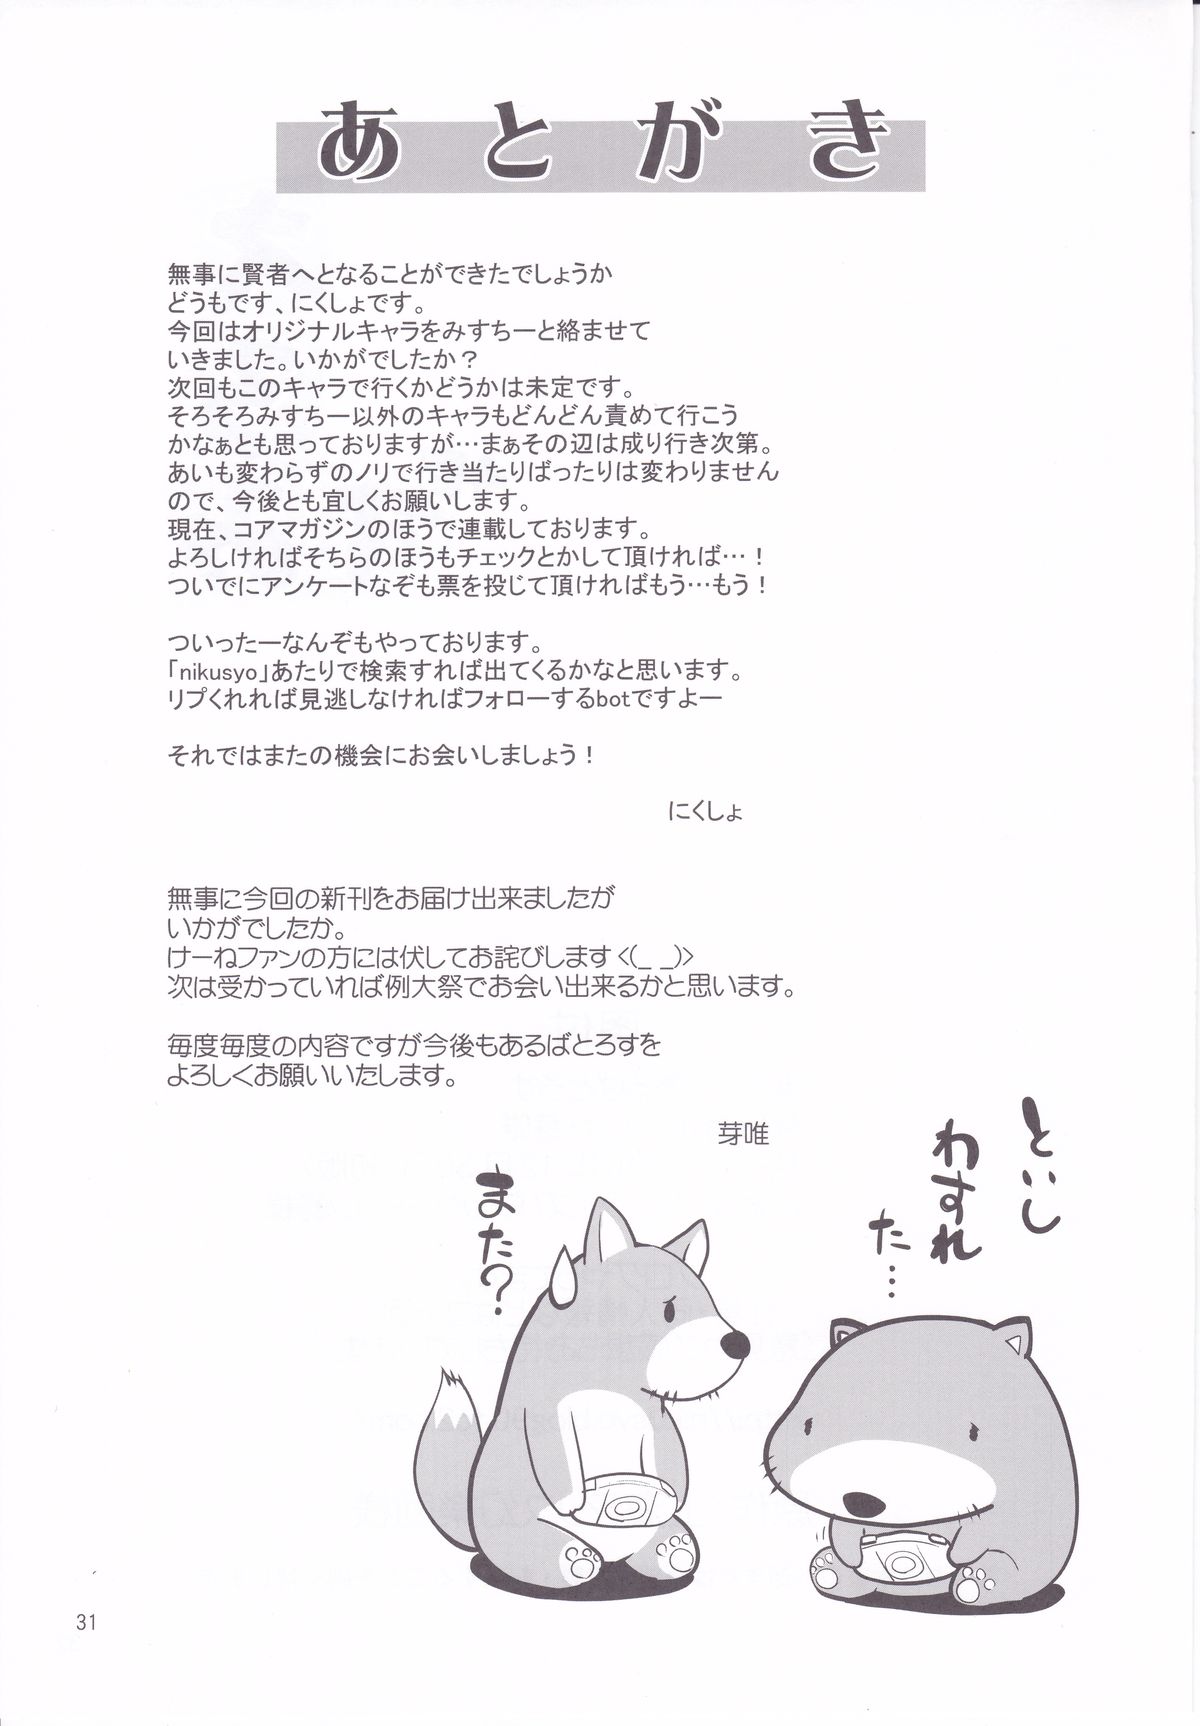 あとがき
無事に賢者へとなることができたでしょうか
どうもです、にくしょです。
今回はオリジナルキャラをみすちーと絡ませて
いきました。いかがでしたか？
次回もこのキャラで行くかどうかは未定です。
そろそろみすちー以外のキャラもどんどん責めて行こう
かなぁとも思っておりますが…まぁその辺は成り行き次第。
あいも変わらずのノリで行き当たりばったりは変わりません
ので、今後とも宜しくお願いします。
現在、コアマガジンのほうで連載しております。
よろしければそちらのほうもチェックとかして頂ければ…！
ついでにアンケートなぞも票を投じて頂ければもう…もう！
ついったーなんぞもやっております。
「nikusyo」あたりで検索すれば出てくるかなと思います。
リプくれれば見逃しなければフォローするbotですよー
それではまたの機会にお会いしましょう！
にくしょ
無事に今回の新刊をお届け出来ましたが
いかがでしたか。
けーねファンの方には伏してお詫びします<(_ _)>
次は受かっていれば例大祭でお会い出来るかと思います。
毎度毎度の内容ですが今後もあるばとろすを
よろしくお願いいたします。
芽唯
といし
わすれ
た…
また？
31